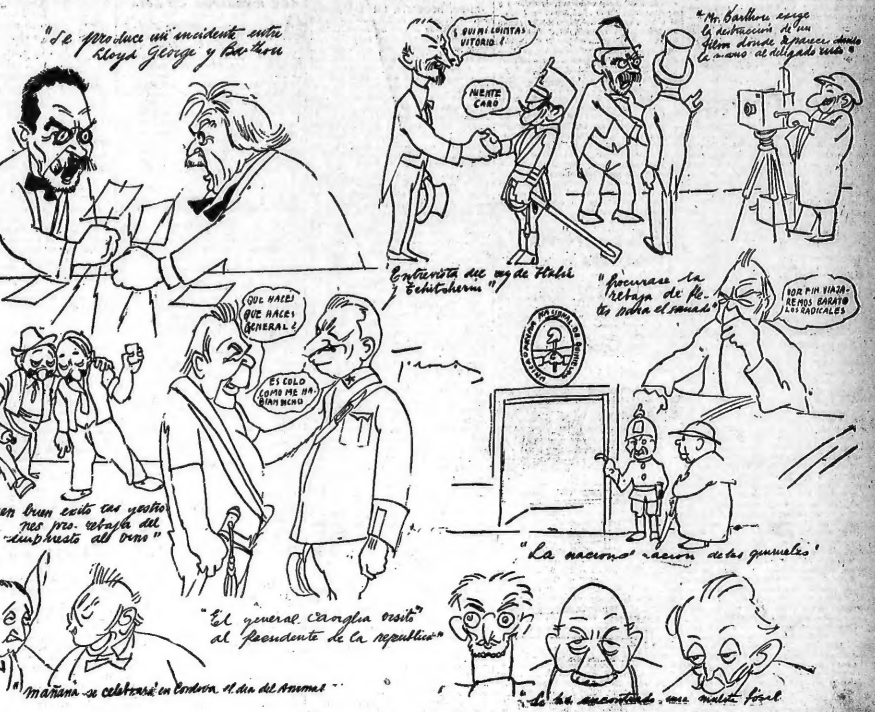 "Se produce un incidente entre
Lloyd George y Barthou
¿ QUI MI CUINTAS
VITORIO ?
NIENTE
CARO
"Mr. Barthou exige
la destrucción de un
film donde aparece dando
la mano al delegado ruso"
"Entrevista del rey de Italia
y Tchitcherin"
"Procurase la
rebaja de fle-
tes para el ganado"
POR FIN VIAJA-
REMOS BARATO
LOS RADICALES
QUE HACES
QUE HACES
GENERAL ?
ES COLO
COMO ME HA-
BIAN DICHO
NACIONAL DE
en buen exito las gestio
nes pro. rebaja del
impuesto al vino"
"El general Caviglia visitó
al Presidente de la republica"
"La de los quinieles"
"mañana se celebrará en Cordova el dia del Animal
"Se ha encontrado una fosil